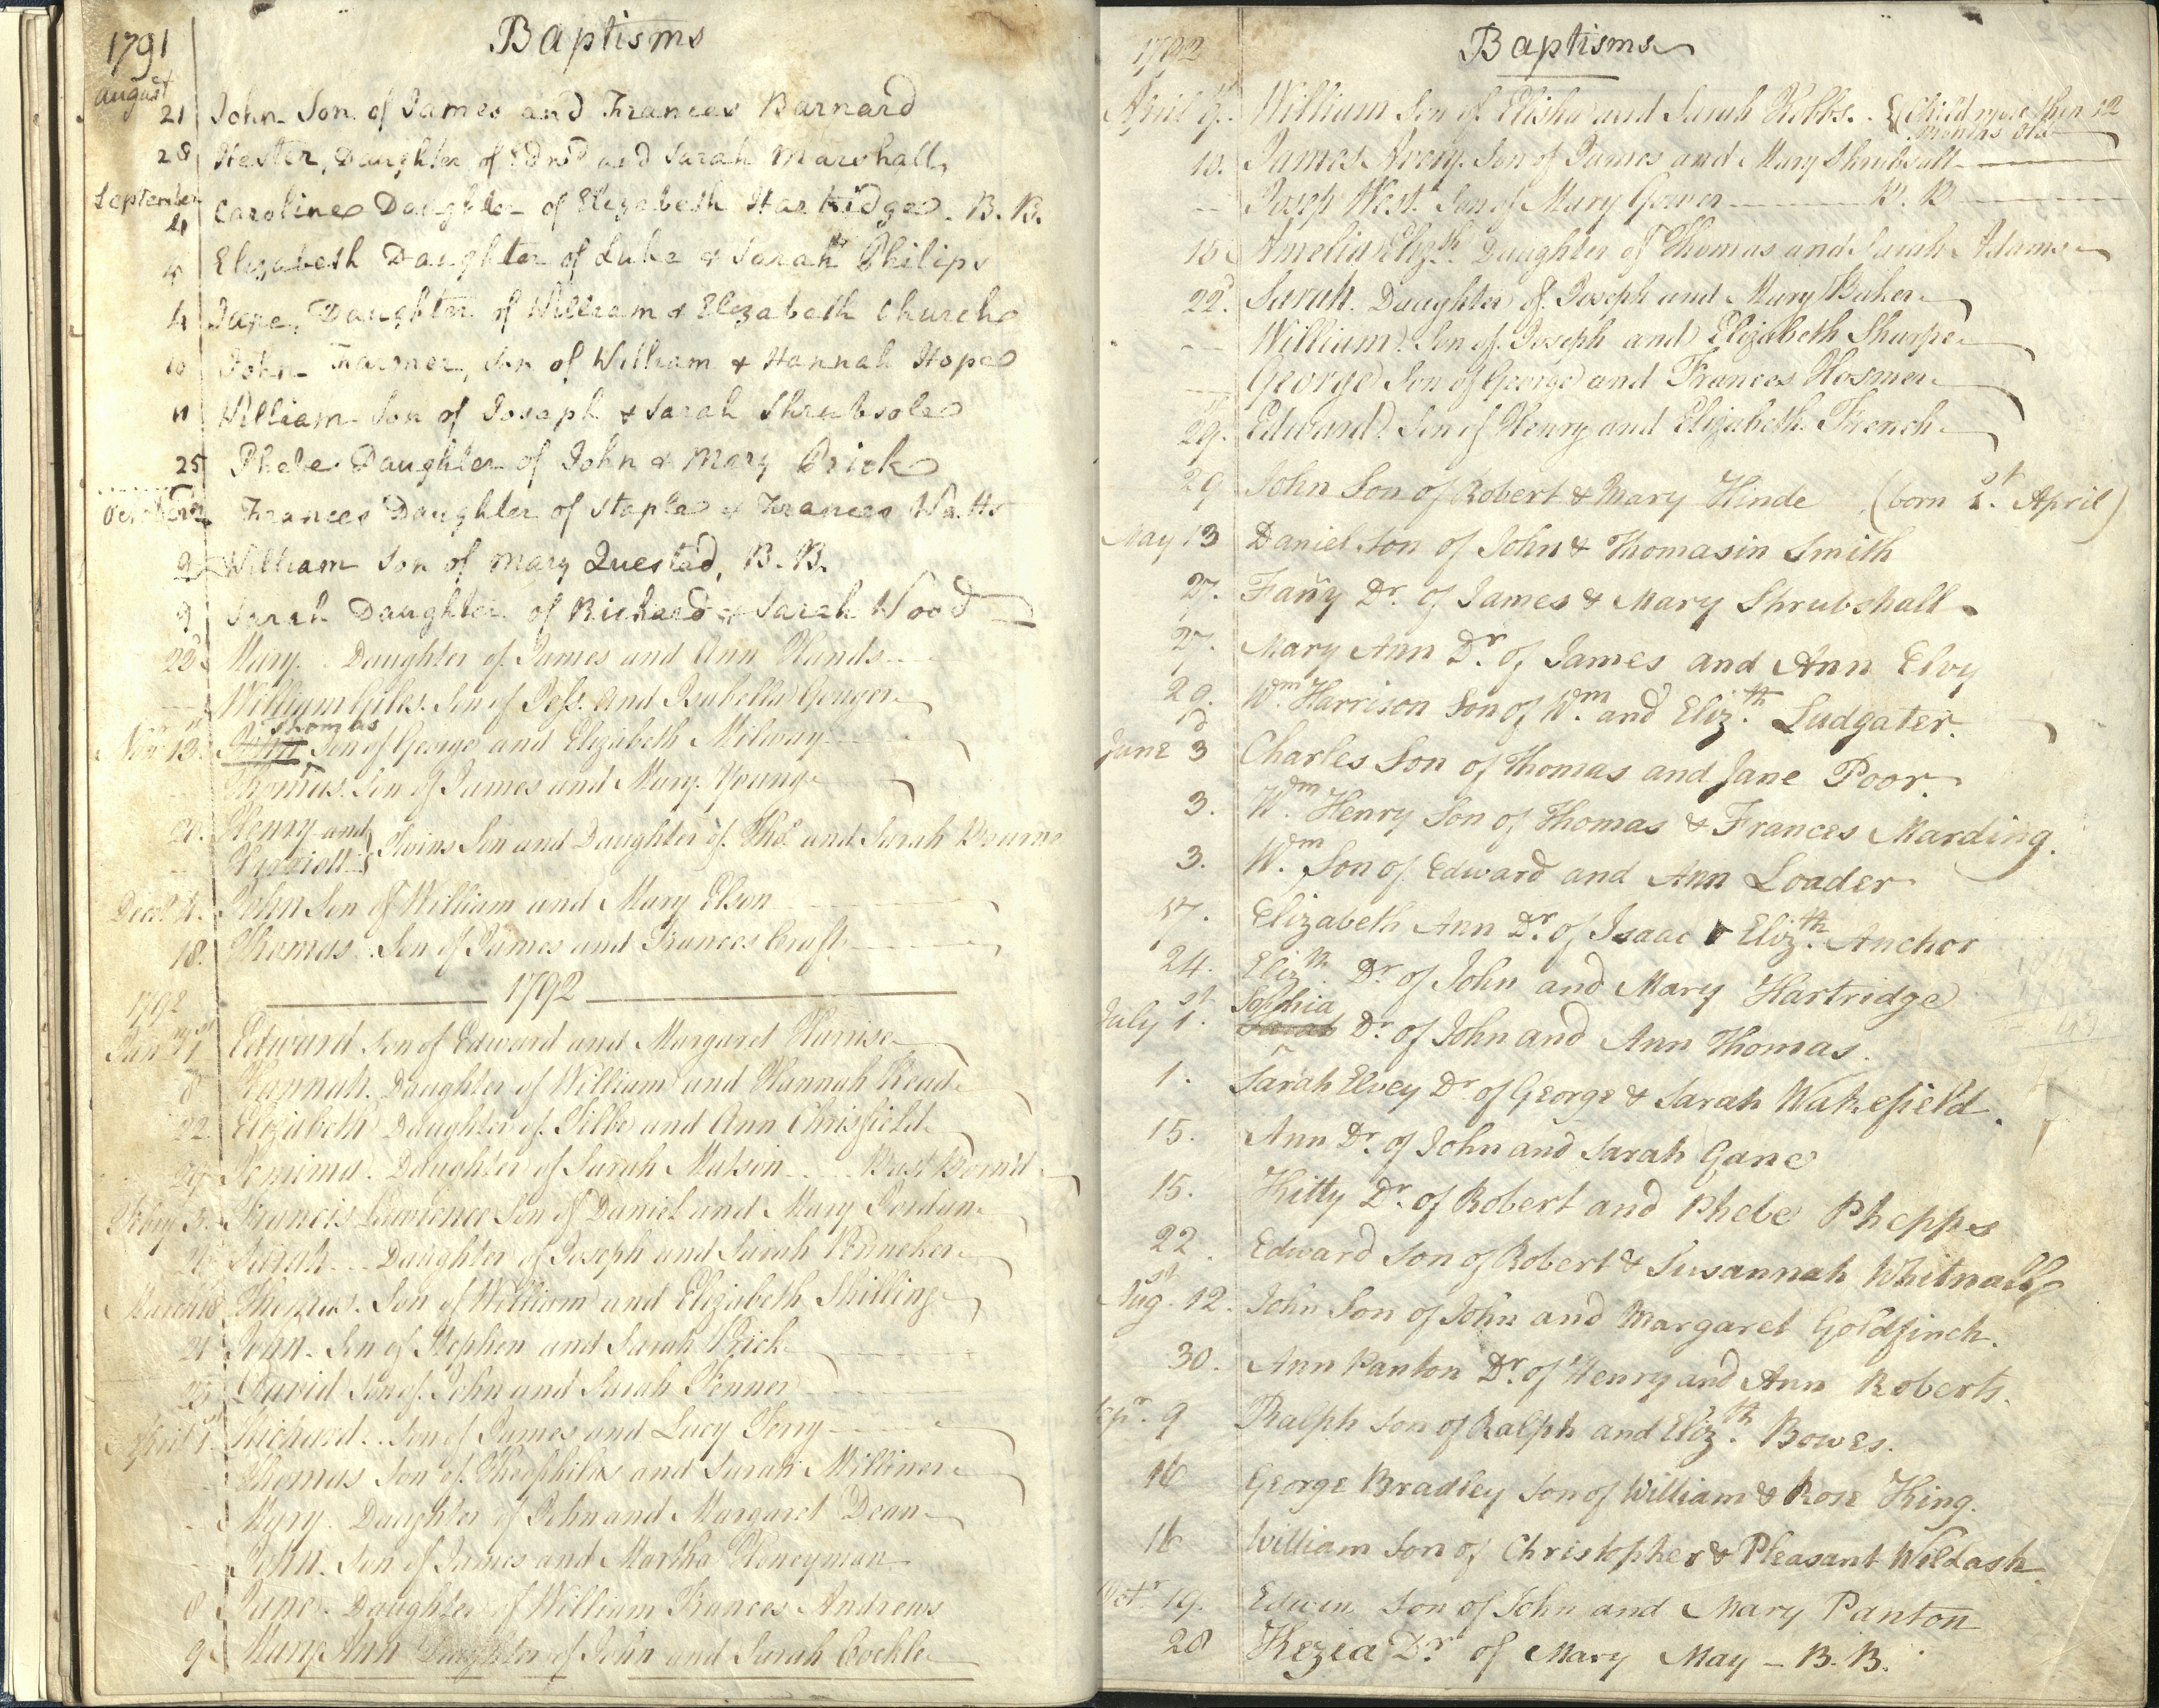 1791 Baptisms
August
21 John Son of James and Frances Barnard
28 Hester, Daughter of Edwd and Sarah Marshall
September
4 Caroline Daughter of Elizabeth Hartridge. B. B.
4 Elizabeth Daughter of Luke & Sarah Philips
4 Jane, Daughter of William & Elizabeth Church
10 John Farmer, Son of William & Hannah Hope
11 William Son of Joseph & Sarah Shrubsole
25 Phebe Daughter of John & Mary Brick
October 2 Frances Daughter of Staple & Frances Watts
9 William Son of Mary Quested, B. B.
9 Sarah Daughter of Richard & Sarah Wood
22d Mary. Daughter of James and Ann Hands
William Giles. Son of Jos. and Isabella Gouger
Thomas
Nov. 13. John Son of George and Elizabeth Milway
Thomas. Son of James and Mary Young
20. Henry and
Harriott } Twins Son and Daughter of Thos and Sarah Bourne
Decr 4. John Son of William and Mary Elson
18. Thomas. Son of James and Frances Craft
1792
1792
Jany 1st Edward Son of Edward and Margaret Harris
8 Hannah. Daughter of William and Hannah Read
22 Elizabeth Daughter of Filbe and Ann Chrisfield
29 Jemima. Daughter of Sarah Matson Bast Born'd
Feby 5. Francis Lawrence Son of Daniel and Mary Jordan
26 Sarah Daughter of Joseph and Sarah Penneker
March 18 Thomas. Son of William and Elizabeth Shilling
21 John. Son of Stephen and Sarah Price
25 David Son of John and Sarah Fenner
April 1st Richard. Son of James and Lucy Terry
Thomas Son of Theophilus and Sarah Milliner
Mary. Daughter of John and Margaret Dean
John. Son of James and Martha Honeyman
8 Jane. Daughter of William Frances Andrews
9 Mary Ann Daughter of John and Sarah Cockle
1792 Baptisms
April 9th William Son of Elisha and Sarah Hobbs. { Child more then 12
months old
10. James Avery. Son of James and Mary Shrubsall
Joseph West. Son of Mary Gower B. B.
15 Amelia Elizth. Daughter of Thomas and Sarah Adams
22d. Sarah. Daughter of Joseph and Mary Baker
William. Son of Joseph and Elizabeth Sharpe
George Son of George and Frances Hosmer
29th. Edward Son of Henry and Elizabeth French
29 John Son of Robert & Mary Hinde (born 1st. April)
May 13 Daniel Son of John & Thomasin Smith
27. Fañy Dr. of James & Mary Shrubshall
27. Mary Ann Dr. of James and Ann Elvy
29. Wm. Harrison Son of Wm. and Eliz.th Ludgater.
June 3d Charles Son of Thomas and Jane Poor.
3. Wm. Henry Son of Thomas & Frances Marding.
3. Wm. Son of Edward and Ann Loader
17. Elizabeth Ann Dr. of Isaac & Eliz.th Anchor
24. Eliz.th Dr. of John and Mary Hartridge
Sophia
July 1st. Sarah Dr. of John and Ann Thomas.
1. Sarah Elvey Dr. of George & Sarah Wakefield.
15. Ann Dr. of John and Sarah Gane
15. Kitty Dr. of Robert and Phebe Phepps
22. Edward Son of Robert & Susannah Whitnall
Augst. 12. John Son of John and Margaret Goldfinch.
30. Ann Panton Dr. of Henry and Ann Roberts.
Sepr. 9 Ralph Son of Ralph and Eliz.th Bowes.
16 George Bradley Son of William & Rose King.
16 William Son of Christopher & Pleasant Wildash.
Octr 19. Edwin Son of John and Mary Panton
28 Kezia Dr. of Mary May – B. B.